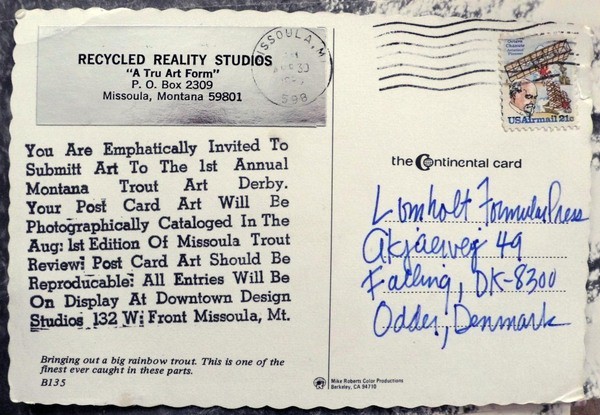 RECYCLED REALITY STUDIOS
"A Tru Art Form"
P. O. Box 2309
Missoula, Montana 59801
MISSOULA, M
30
598
Octave
Chanute
US Airmail 21c
You Are Emphatically Invited To
Submitt Art To The 1st Annual
Montana Trout Art Derby.
Your Post Card Art Will Be
Photographically Cataloged In The
Aug: 1st Edition Of Missoula Trout
Review: Post Card Art Should Be
Reproducable: All Entries Will Be
On Display At Downtown Design
Studios 132 W: Front Missoula, Mt.
Bringing out a big rainbow trout. This is one of the
finest ever caught in these parts.
B135
the Continental card
Lomholt Formular Press
Akjaervej 49
Falling, DK-8300
Odder, Denmark
Mike Roberts Color Productions
Berkeley, CA 94710